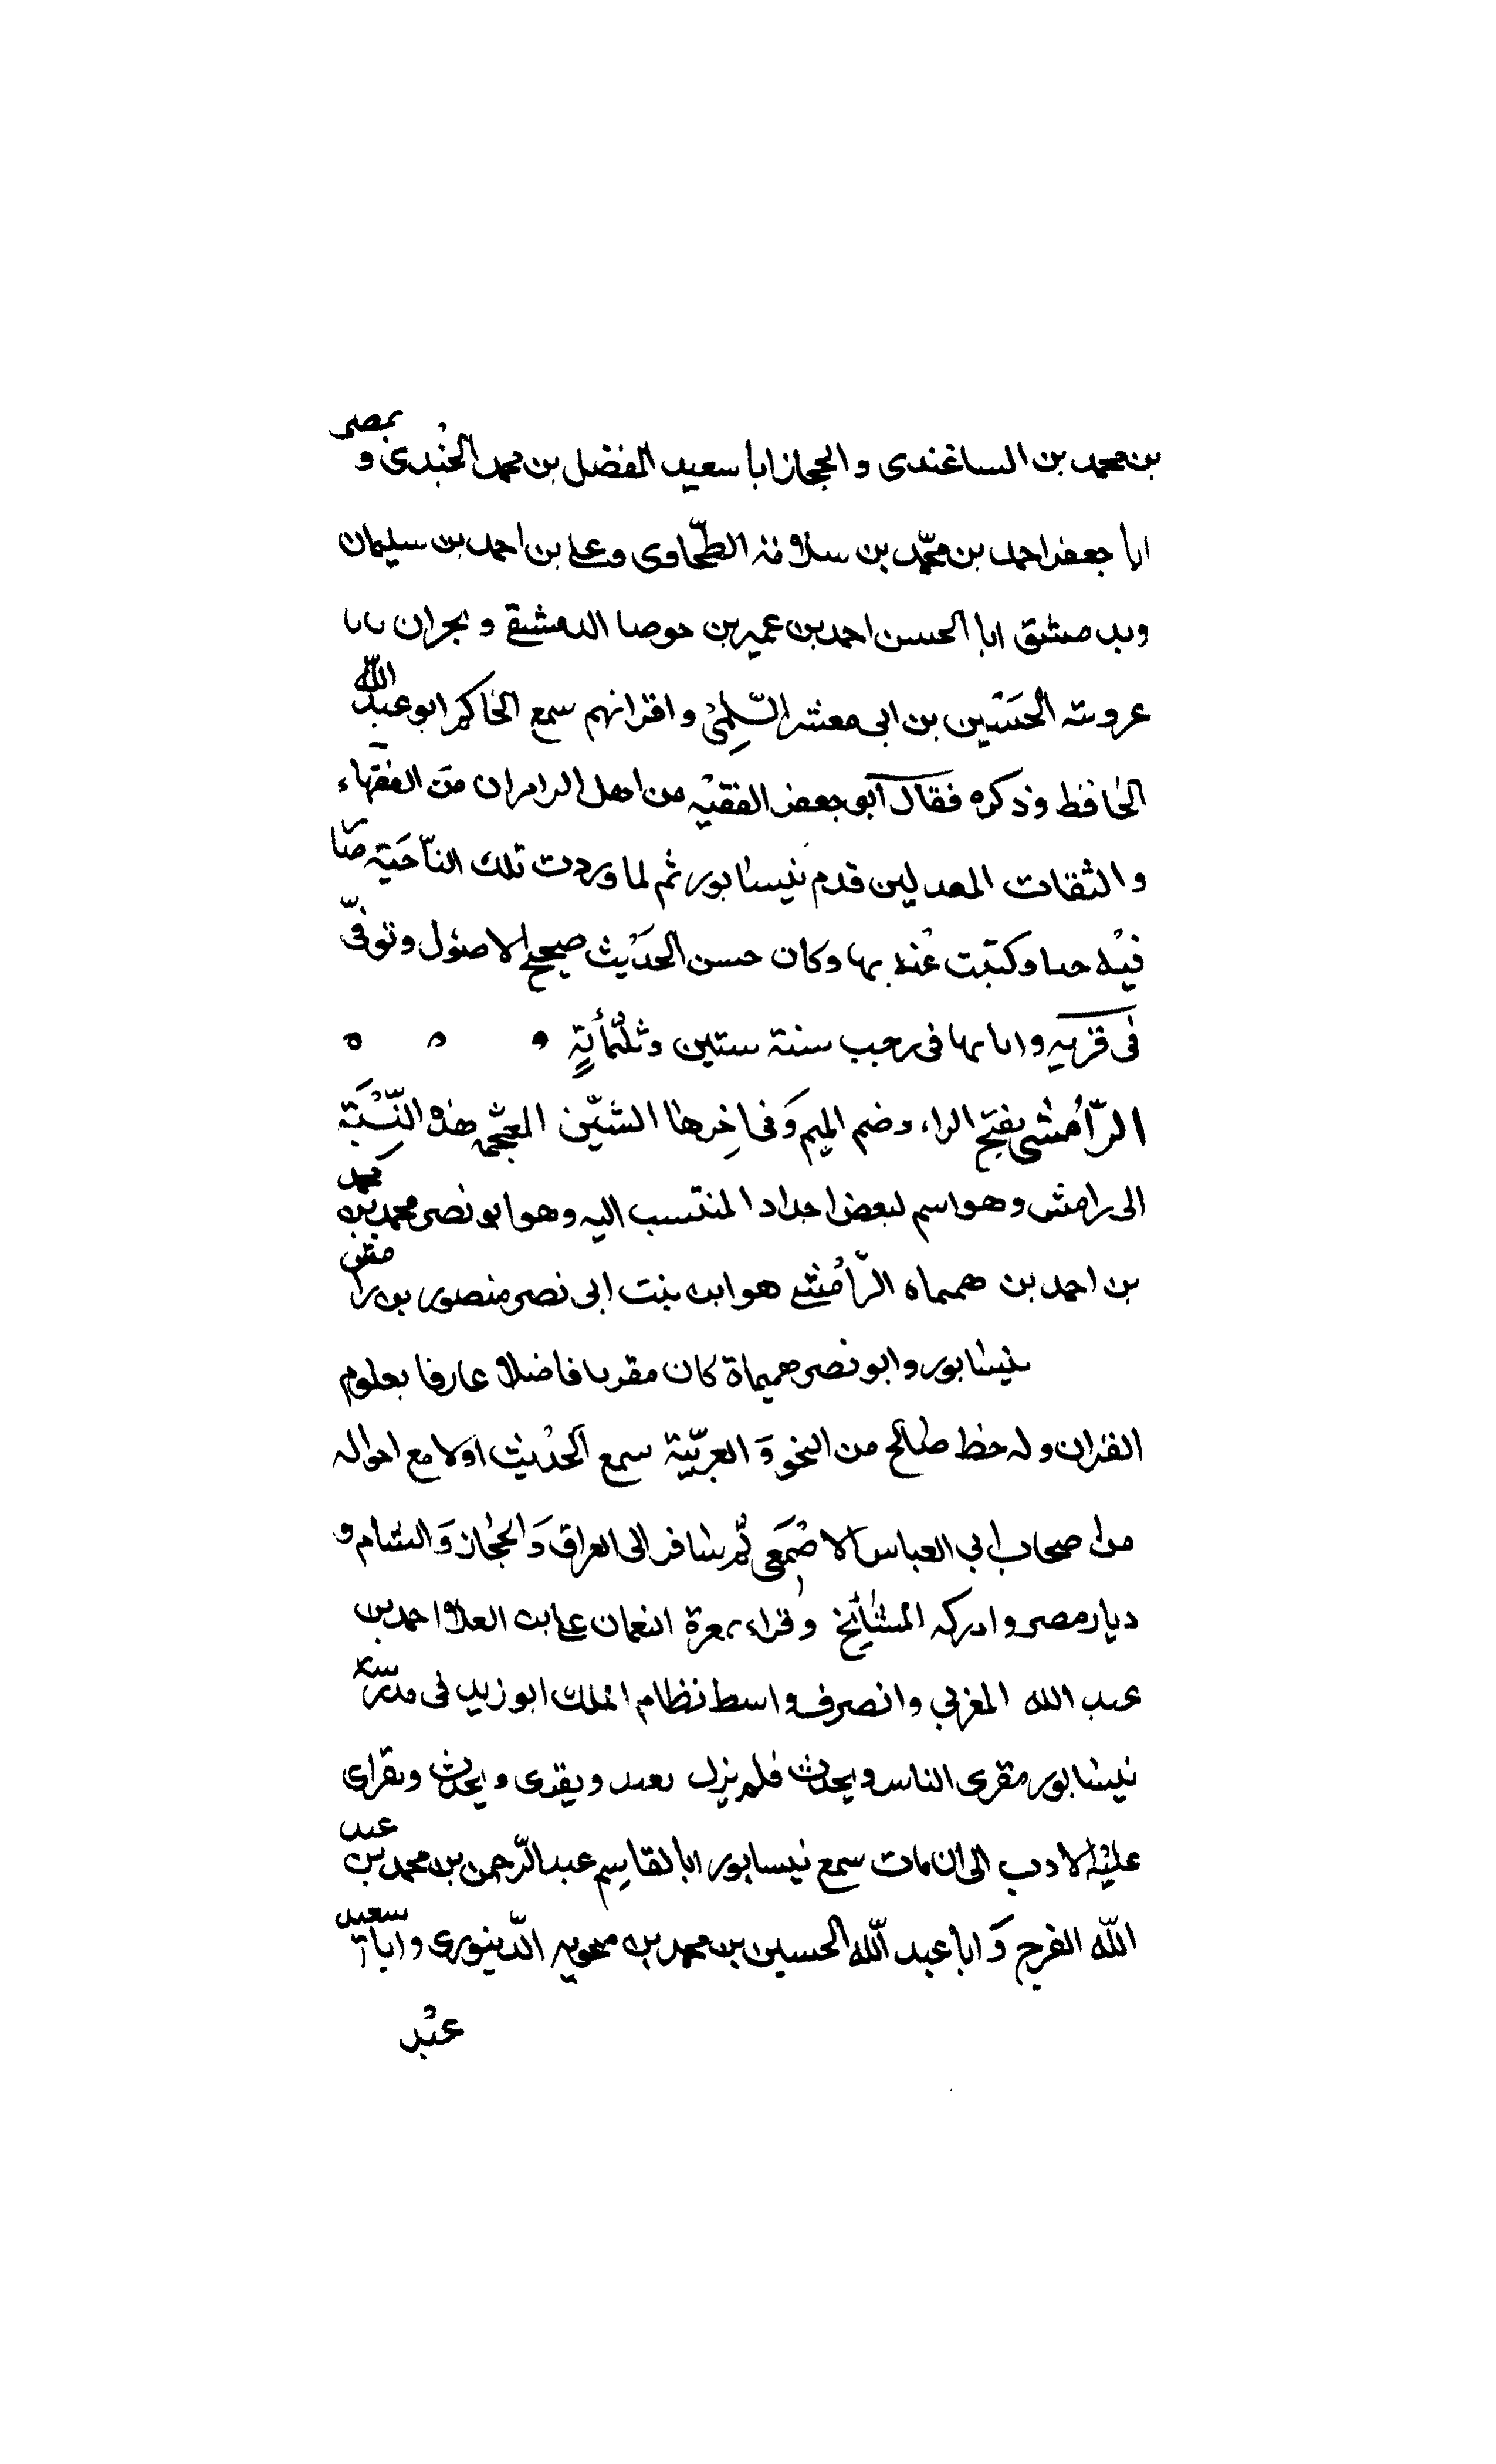 بن محمد بن الساغندى والحجاز ابا سعيد المفضل بن محمد الجندى و بمصر
ابا جعفر احمد بن محمّد بن سلامة الطّحاوى وعلى بن احمد بن سليمان
وبدمشق ابا الحسن احمد بن عمير بن حوصا الدمشقى وبحران بابا
عروبة الحسَين بن ابى معشر السّلِمىْ واقرانهم سمع الحاكم ابو عبد اللّه
الحافظ وذكره فقال ابو جعفر الفقيْه من اهل الرامران من الفقهاء
والثقات المعدلين قدم نيسابور ثم لما وردت تلك النّاحَية
فيْه حيا وكتبت عْنه بها وكان حسن الحدَيْث صحيح الاصْول وتوفّى
فى قريه وانا بها فى رجب سنة ستين وثلثمأيةٍ
الرّامُشى بفتح الراء وضم الميم وَفى اخِرها الشّين المعجمه هذه النِّسْبَة
الى رامش وهو اسم لبعض اجداد المنتسب اليه وهو ابو نصر محمد بن محمد
بن احمد بن هميماه الرّامُشى هو ابن بنت ابى نصر منصور بن رامش
نيسابور وابو نصر هميماة كان مقريا فاضلا عارفا بعلوم
القران وله حظ صالح من النحو وَالعربّية سمع الحدْيث اولا مع اخواله
من اصحاب ابي العباس الاصْمَعى ثُم سافر الى العراق وَالحجاز وَالشام و
ديار مصر وادركه المشأيخ وقراء بمعرة النعمان على ابن العلا احمد بن
عبد الله المغربي وانصرف واسط نظام الملك ابو زيد فى مدرسه
نيسابور مقرى الناس ويحدث فلم يزل بعد ويقدى ويحدث ويقراى
عليْه الادب الى ان مات سمع نيسابور ابا القاسِم عبد الرّحمن بن محمد بن عبد
اللّه الفرج وَابا عبد اللّه الحسين بن محمد بن محويه الدّينورى وابا سعيد
عبْد